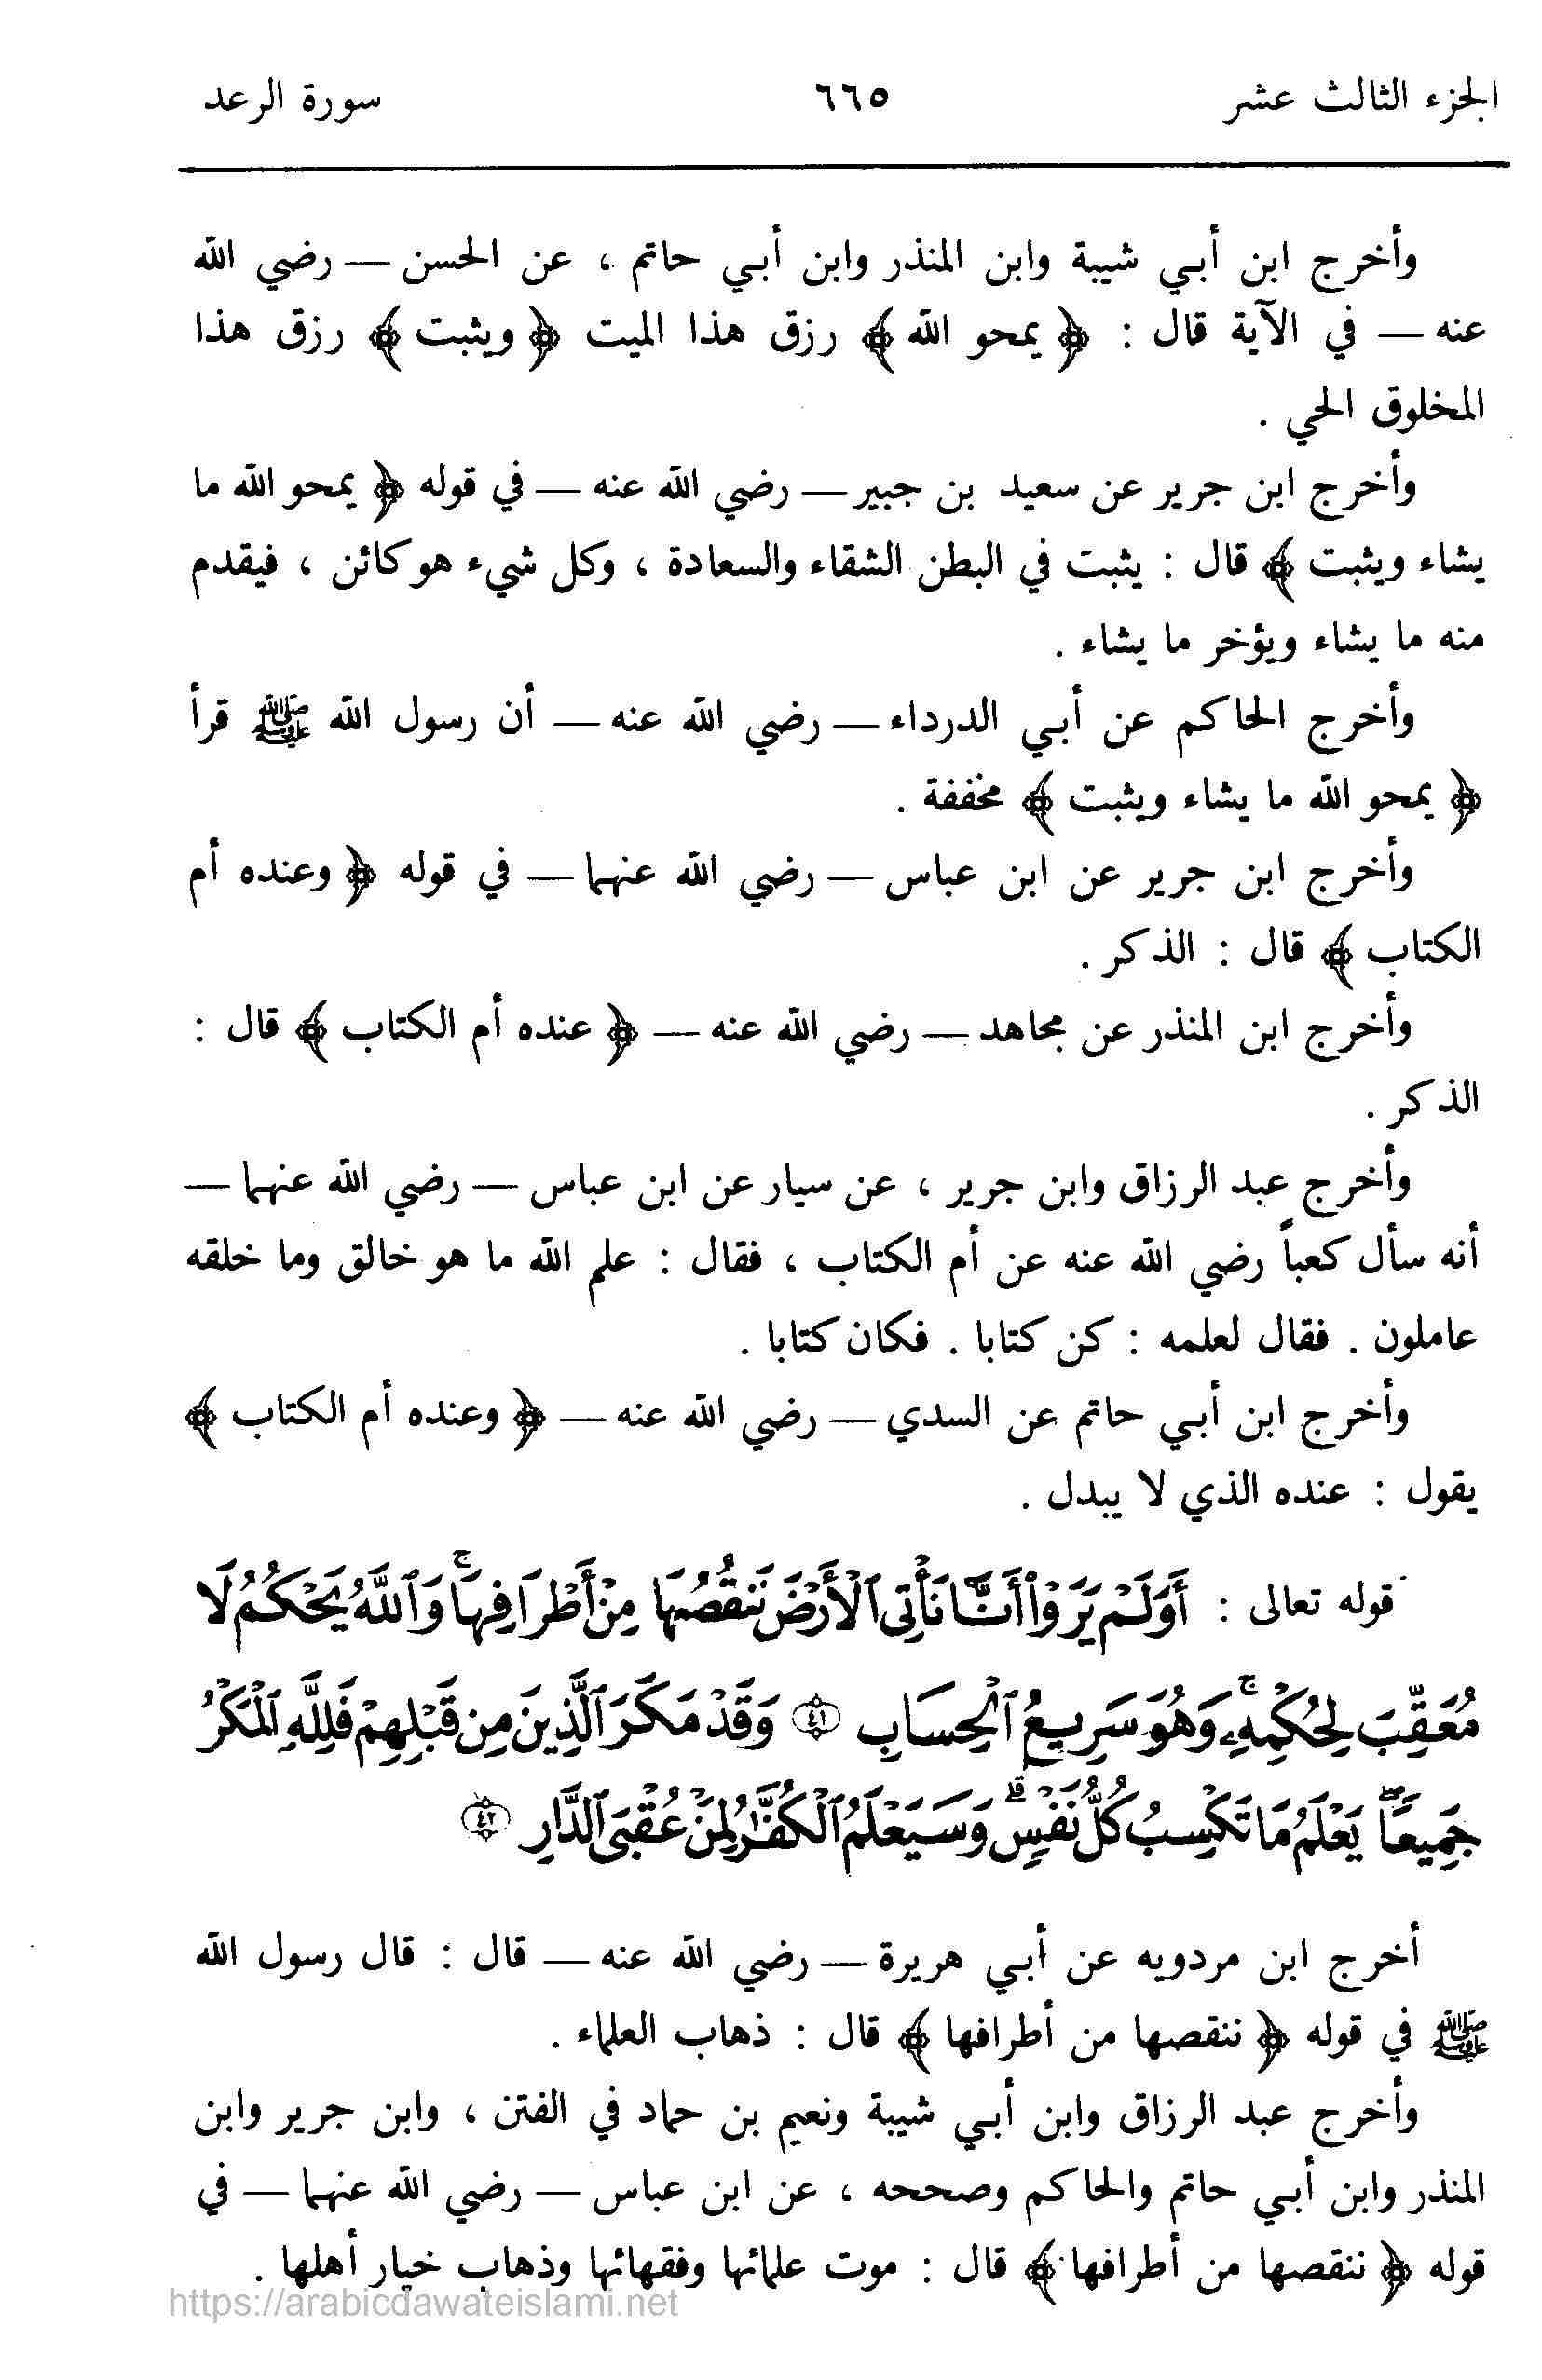 الجزء الثالث عشر ٦٦٥ سورة الرعد
وأخرج ابن أبي شيبة وابن المنذر وابن أبي حاتم ، عن الحسن — رضي الله
عنه — في الآية قال : ﴿ يمحو الله ﴾ رزق هذا الميت ﴿ ويثبت ﴾ رزق هذا
المخلوق الحي .
وأخرج ابن جرير عن سعيد بن جبير — رضي الله عنه — في قوله ﴿ يمحو الله ما
يشاء ويثبت ﴾ قال : يثبت في البطن الشقاء والسعادة ، وكل شيء هو كائن ، فيقدم
منه ما يشاء ويؤخر ما يشاء .
وأخرج الحاكم عن أبي الدرداء — رضي الله عنه — أن رسول الله ﷺ قرأ
﴿ يمحو الله ما يشاء ويثبت ﴾ مخففة .
وأخرج ابن جرير عن ابن عباس — رضي الله عنهما — في قوله ﴿ وعنده أم
الكتاب ﴾ قال : الذكر .
وأخرج ابن المنذر عن مجاهد — رضي الله عنه — ﴿ عنده أم الكتاب ﴾ قال :
الذكر .
وأخرج عبد الرزاق وابن جرير ، عن سيار عن ابن عباس — رضي الله عنهما —
أنه سأل كعباً رضي الله عنه عن أم الكتاب ، فقال : علم الله ما هو خالق وما خلقه
عاملون . فقال لعلمه : كن كتابا . فكان كتابا .
وأخرج ابن أبي حاتم عن السدي — رضي الله عنه — ﴿ وعنده أم الكتاب ﴾
يقول : عنده الذي لا يبدل .
قوله تعالى : أَوَلَمْ يَرَوْا۟ أَنَّا نَأْتِى ٱلْأَرْضَ نَنقُصُهَا مِنْ أَطْرَافِهَا ۚ وَٱللَّهُ يَحْكُمُ لَا
مُعَقِّبَ لِحُكْمِهِۦ ۚ وَهُوَ سَرِيعُ ٱلْحِسَابِ ۝٤١ وَقَدْ مَكَرَ ٱلَّذِينَ مِن قَبْلِهِمْ فَلِلَّهِ ٱلْمَكْرُ
جَمِيعًا ۖ يَعْلَمُ مَا تَكْسِبُ كُلُّ نَفْسٍ ۗ وَسَيَعْلَمُ ٱلْكُفَّـٰرُ لِمَنْ عُقْبَى ٱلدَّارِ ۝٤٢
أخرج ابن مردويه عن أبي هريرة — رضي الله عنه — قال : قال رسول الله
ﷺ في قوله ﴿ ننقصها من أطرافها ﴾ قال : ذهاب العلماء .
وأخرج عبد الرزاق وابن أبي شيبة ونعيم بن حماد في الفتن ، وابن جرير وابن
المنذر وابن أبي حاتم والحاكم وصححه ، عن ابن عباس — رضي الله عنهما — في
قوله ﴿ ننقصها من أطرافها ﴾ قال : موت علمائها وفقهائها وذهاب خيار أهلها .
https://arabicdawateislami.net